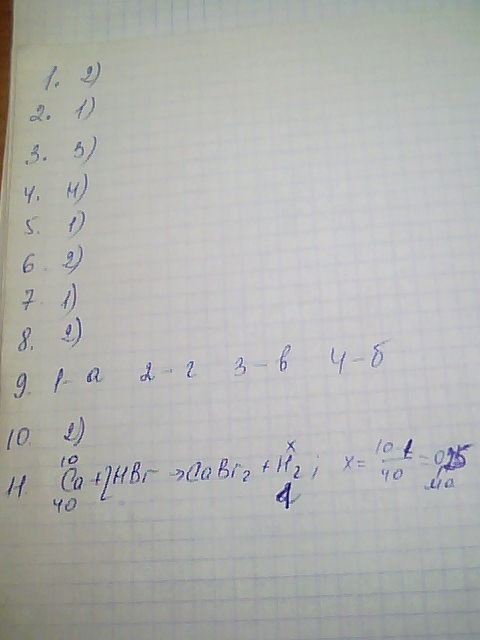 1. 2)
2. 1)
3. 3)
4. 4)
5. 1)
6. 2)
7. 1)
8. 2)
9. 1- а 2 - г 3 - в 4 - б
10. 2)
10 x
11. Ca + 2HBr → CaBr2 + H2; x = 10·1/40 = 0,25
40 1 моль